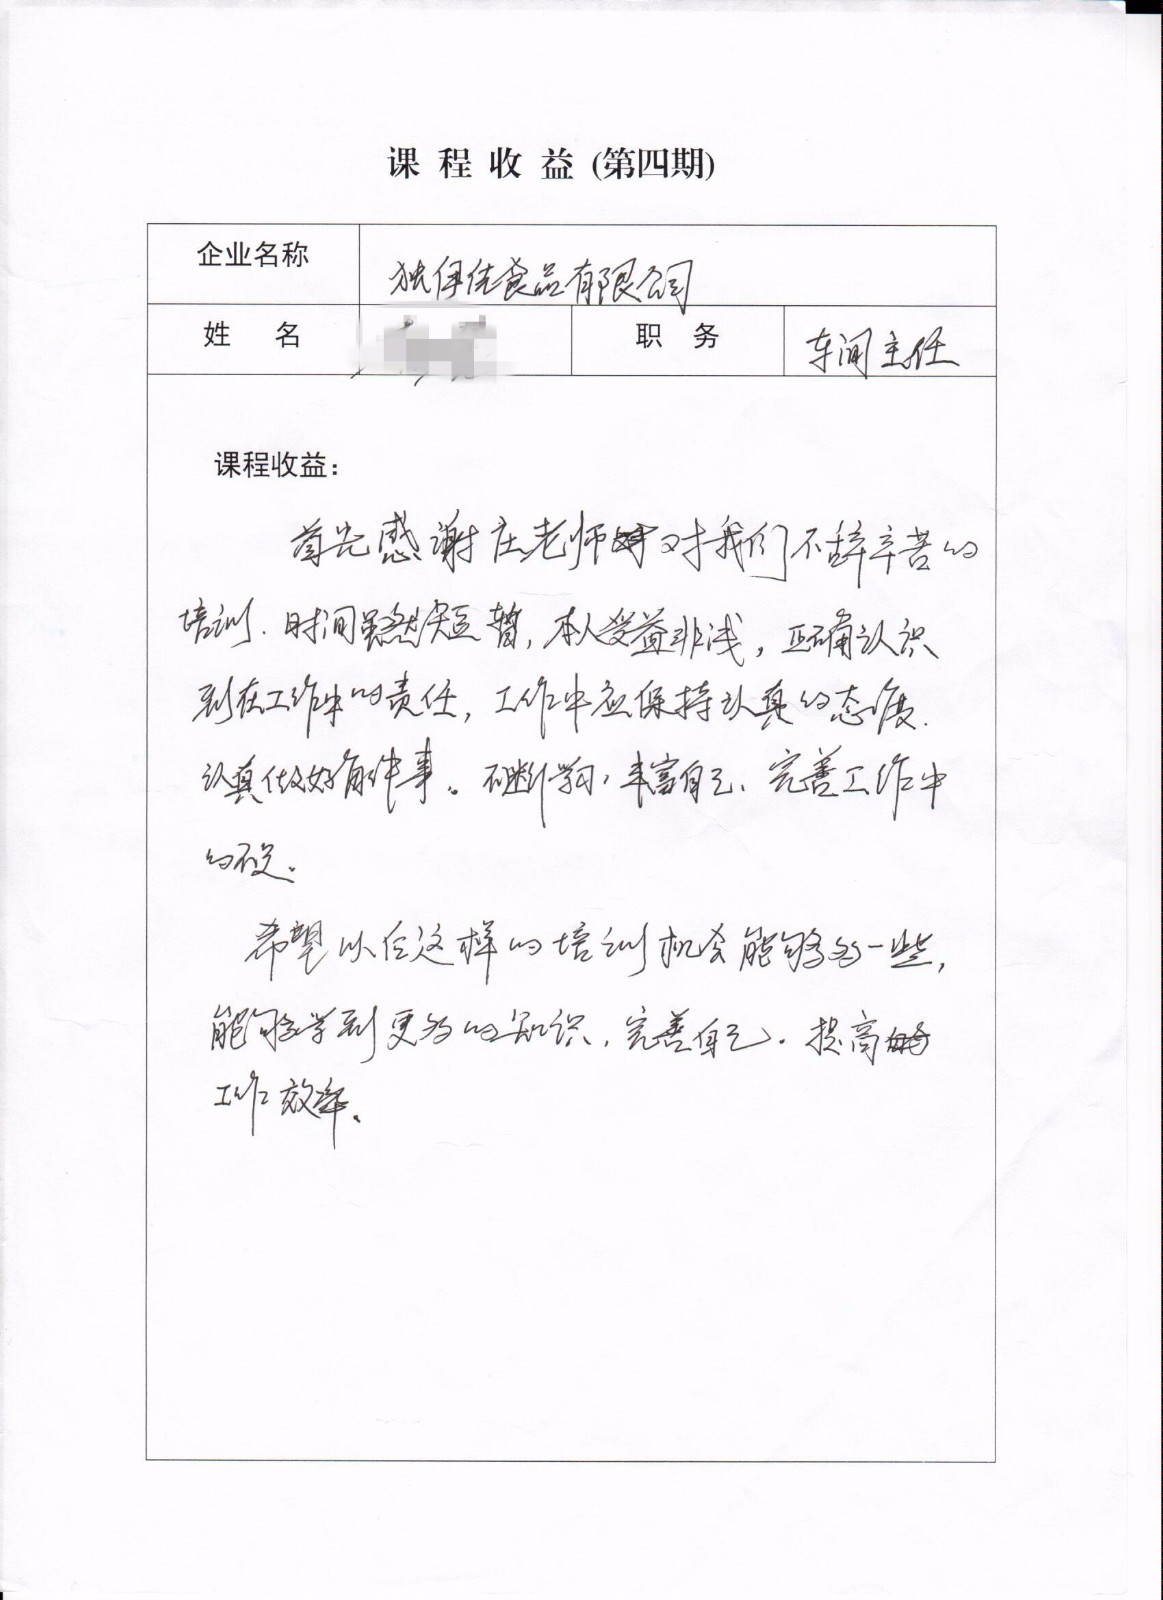 课程收益(第四期)
企业名称 独伊佳食品有限公司
姓名 职务 车间主任
课程收益：
首先感谢庄老师对我们不辞辛苦的
培训.时间虽然短暂,本人受益非浅,正确认识
到在工作中的责任,工作中应保持认真的态度.
认真做好每件事。不断学习,丰富自己、完善工作中
的不足。
希望以后这样的培训机会能够多一些,
能够学到更多的知识,完善自己.提高
工作效率。